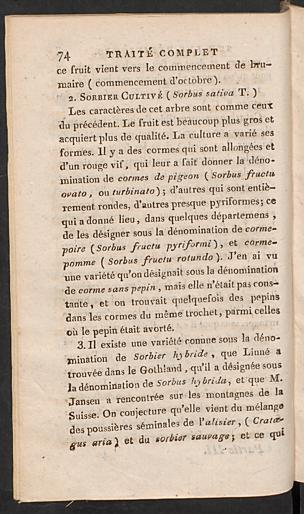 74 TRAITÉ COMPLET
ce fruit vient vers le commencement de bru-
maire ( commencement d'octobre ).
2. SORBIER CULTIVÉ ( Sorbus sativa T. )
Les caractères de cet arbre sont comme ceux
du précédent. Le fruit est beaucoup plus gros et
acquiert plus de qualité. La culture a varié ses
formes. Il y a des cormes qui sont allongées et
d'un rouge vif, qui leur a fait donner la déno-
mination de cormes de pigeon ( Sorbus fructu
ovato, ou turbinato ) ; d'autres qui sont entiè-
rement rondes, d'autres presque pyriformes ; ce
qui a donné lieu, dans quelques départemens ,
de les désigner sous la dénomination de corme-
poire ( Sorbus fructu pyriformi ), et corme-
pomme ( Sorbus fructu rotundo ). J'en ai vu
une variété qu'on désignait sous la dénomination
de corme sans pepin , mais elle n'était pas cons-
tante , et on trouvait quelquefois des pepins
dans les cormes du même trochet, parmi celles
où le pepin était avorté.
3. Il existe une variété connue sous la déno-
mination de Sorbier hybride , que Linné a
trouvée dans le Gothland , qu'il a désignée sous
la dénomination de Sorbus hybrida, et que M.
Jansen a rencontrée sur les montagnes de la
Suisse. On conjecture qu'elle vient du mélange
des poussières séminales de l'alisier, ( Cratæ-
gus aria ) et du sorbier sauvage ; et ce qui